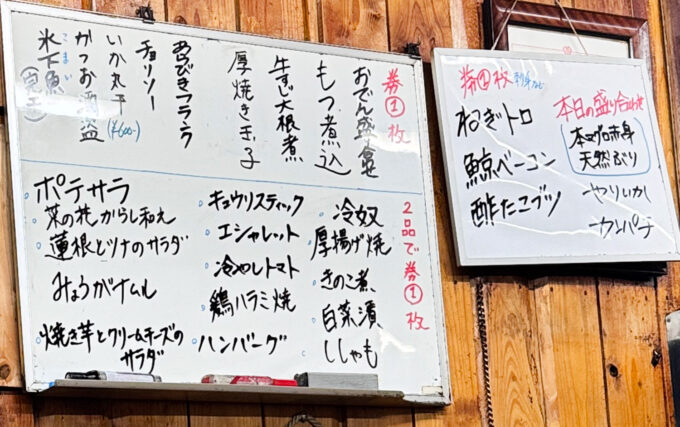 券①枚
おでん盛合せ
もつ煮込
牛すじ大根煮
厚焼き玉子
えびきフライ
チョリソー
いか丸干
(¥600-)
かつお酒盗
こまい
氷下魚
2品で券①枚
冷奴
厚揚げ焼
きのこ煮
白菜漬
ししゃも
キュウリスティック
エシャレット
冷やしトマト
鶏ハラミ焼
ハンバーグ
ポテサラ
菜の花からし和え
蓮根とツナのサラダ
みょうがナムル
焼き芋とクリームチーズの
サラダ
本日の盛り合わせ
本マグロ赤身
天然ぶり
やりいか
カンパチ
券①枚
刺身など
ねぎトロ
鯨ベーコン
酢たこブツ